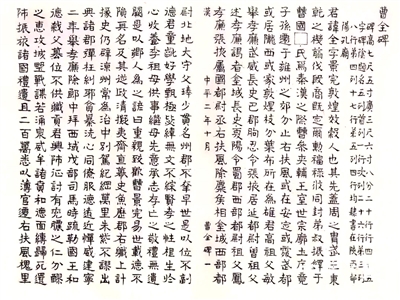 曹全碑
陽孔廟
君諱全字景完敦煌效穀人也其先蓋周之胄武王秉
乾之機翦伐殷商既定爾勳福祿攸同封弟叔振鐸于
曹國氏焉秦漢之際曹參夾輔王室世宗廓土斥竟
子孫遷于雍州之郊分止右扶風或在安定或處武都
或居隴西或家敦煌枝分葉布所在為雄君高祖父敏
舉孝廉武威長史巴郡朐忍令張掖居延都尉曾祖父
述孝廉謁者金城長史夏陽令蜀郡西部都尉祖父鳳
孝廉張掖屬國都尉丞右扶風隃麋侯相金城西部都
漢 中平二年十月 曹全碑 一
尉北地大守父琫少貫名州郡不幸早世是以位不副
德君童齔好學甄極毖緯無文不綜賢孝之性根生於
心收養季祖母供事繼母先意承志存亡之敬禮無遺
闕是以鄉人為之諺曰重親致歡曹景完易世載德不
隕其名及其從政清擬夷齊直慕史魚歷郡右職上計
掾史仍辟涼州常為治中別駕紀綱萬里朱紫不謬出
典諸郡彈枉糾邪貪暴洗心同僚服德遠近憚威建寧
二年舉孝廉除郎中拜西域戊部司馬時疏勒國王和
德弒父篡位不供職貢君興師征討有兗膿之仁分醪
之惠攻城墅戰謀若涌泉威牟諸賁和德面縛歸死還
師振旅諸國禮遺且二百萬悉以薄官遷右扶風槐里